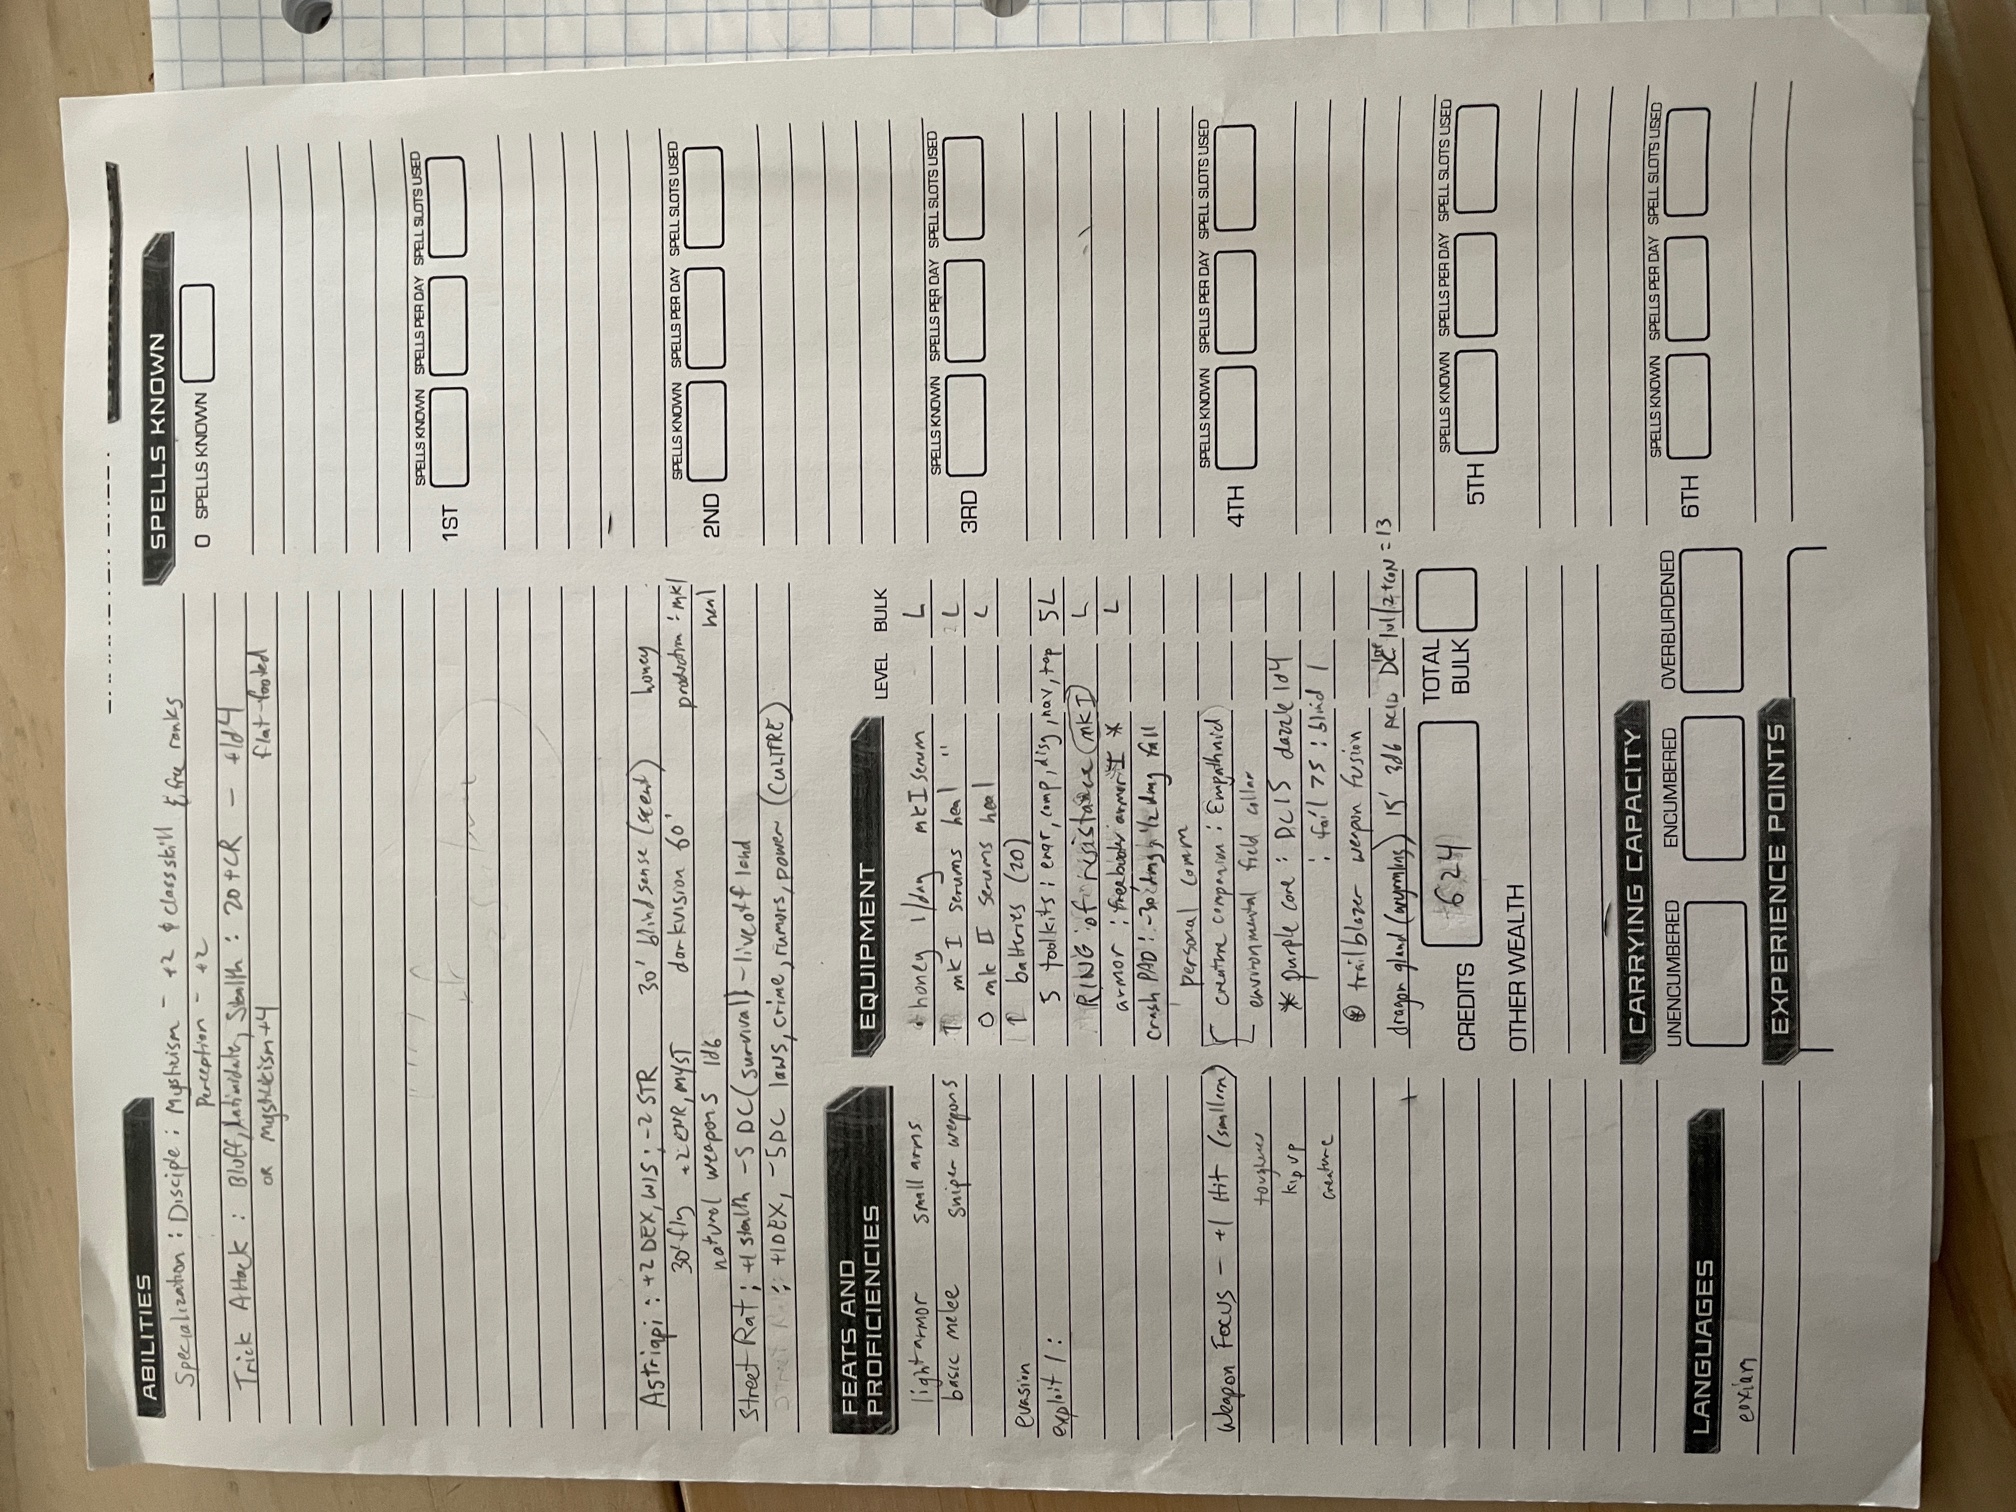 ABILITIES
Specialization : Disciple : Mysticism - +2 & class skill & free ranks
Perception - +2
Trick Attack : Bluff, Intimidate, Stealth : 20 + CR - +1d4
OR Mysticism +4 flat-footed
Astriapi : +2 DEX, WIS ; -2 STR 30' blindsense (scent) honey
30' fly +2 ENR, MYST darkvision 60' production : mk1
natural weapons 1d6 heal
Street Rat ; +1 stealth -5 DC (survival) - live off land
: +1 DEX, -5 DC laws, crime, rumors, power (CULTRE)
FEATS AND
PROFICIENCIES
light armor small arms
basic melee sniper weapons
evasion
exploit 1 :
Weapon FOCUS - +1 Hit (smallarm)
toughness
kip up
creature
LANGUAGES
eoxian
EQUIPMENT
LEVEL BULK
honey 1/day mk I serum L
1 mk I serums heal " L
0 mk II serums heal L
1 batteries (20)
5 toolkits : engr, comp, disg, nav, trap 5L
RING of resistance (mk I) L
armor : freebooter armor I * L
crash PAD : -30' dmg, 1/2 dmg fall
personal comm
creature companion : Empathnid
environmental field collar
* purple core : DC 15 dazzle 1d4
: fail >5 : blind 1
⊛ trailblazer weapon fusion
dragon gland (wyrmling) 15' 3d6 ACID DC lvl/2 + CON = 13
CREDITS 624 TOTAL
BULK
OTHER WEALTH
CARRYING CAPACITY
UNENCUMBERED ENCUMBERED OVERBURDENED
EXPERIENCE POINTS
SPELLS KNOWN
0 SPELLS KNOWN
SPELLS KNOWN SPELLS PER DAY SPELL SLOTS USED
1ST
SPELLS KNOWN SPELLS PER DAY SPELL SLOTS USED
2ND
SPELLS KNOWN SPELLS PER DAY SPELL SLOTS USED
3RD
SPELLS KNOWN SPELLS PER DAY SPELL SLOTS USED
4TH
SPELLS KNOWN SPELLS PER DAY SPELL SLOTS USED
5TH
SPELLS KNOWN SPELLS PER DAY SPELL SLOTS USED
6TH